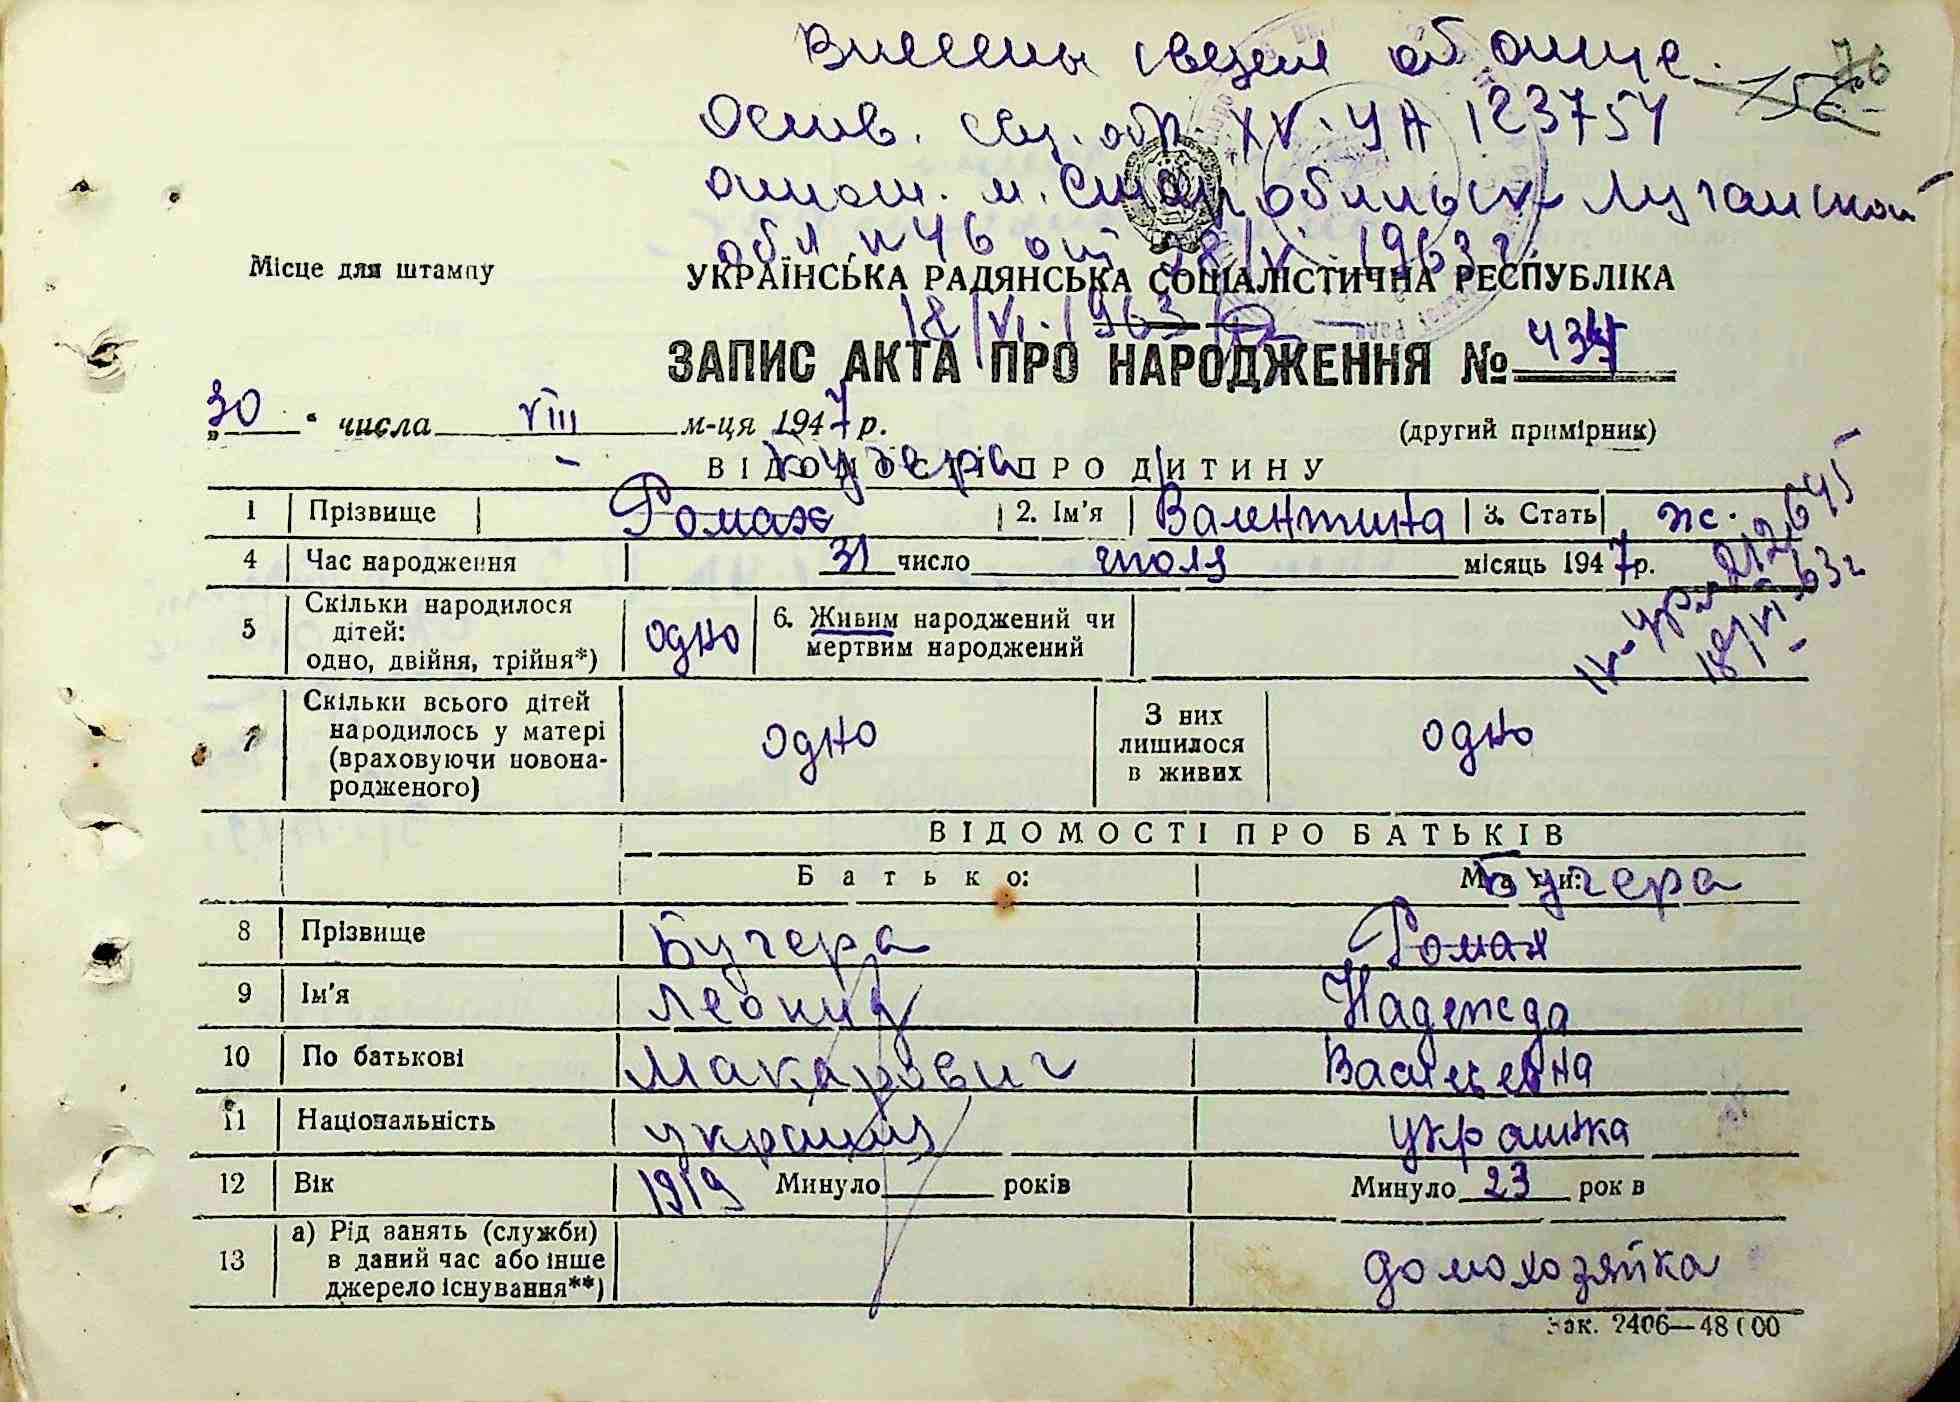 Внесены сведен об отце.
Основ. свид. обр. XV. УА 123754
отност. м. Старобельск Луганской
обл. N 46 от 18/VI. 1963 г.
18/VI. 1963
Місце для штампу
УКРАЇНСЬКА РАДЯНСЬКА СОЦІАЛІСТИЧНА РЕСПУБЛІКА
ЗАПИС АКТА ПРО НАРОДЖЕННЯ №
„30“ числа VIII м-ця 1947 р.
(другий примірник)
Бучера
ВІДОМОСТІ ПРО ДИТИНУ
1 Прізвище Роман 2. Ім'я Валентина 3. Стать ж.
4 Час народження 31 число июля місяць 1947 р.
5 Скільки народилося дітей: одно, двійня, трійня*) одно 6. Живим народжений чи мертвим народжений
7 Скільки всього дітей народилось у матері (враховуючи новонародженого) одно З них лишилося в живих одно
212645
18/VI-63 г
ВІДОМОСТІ ПРО БАТЬКІВ
Батько: Мати:
Бучера
8 Прізвище Бучера Роман
9 Ім'я Леонид Надежда
10 По батькові Макарович Васильевна
11 Національність украинец украинка
12 Вік 1919 Минуло років Минуло 23 рок в
13 а) Рід занять (служби) в даний час або інше джерело існування**) домохозяйка
Зак. 2406—48000